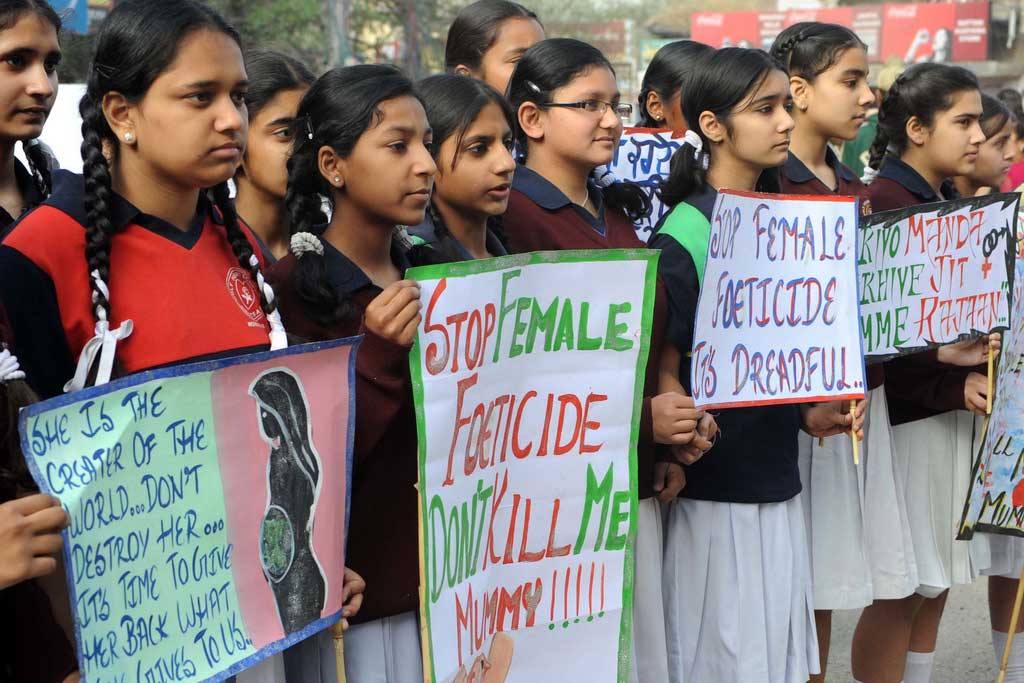 SHE IS THE
CREATER OF THE
WORLD...DON'T
DESTROY HER...
ITS TIME TO GIVE
HER BACK WHAT
GIVES TO US..
STOP FEMALE
FOETICIDE
DON'T KILL ME
MUMMY!!!!!
STOP FEMALE
FOETICIDE
IT'S DREADFUL..
KIYO MANDA
JIT
RAJAAN..
Coca-Cola